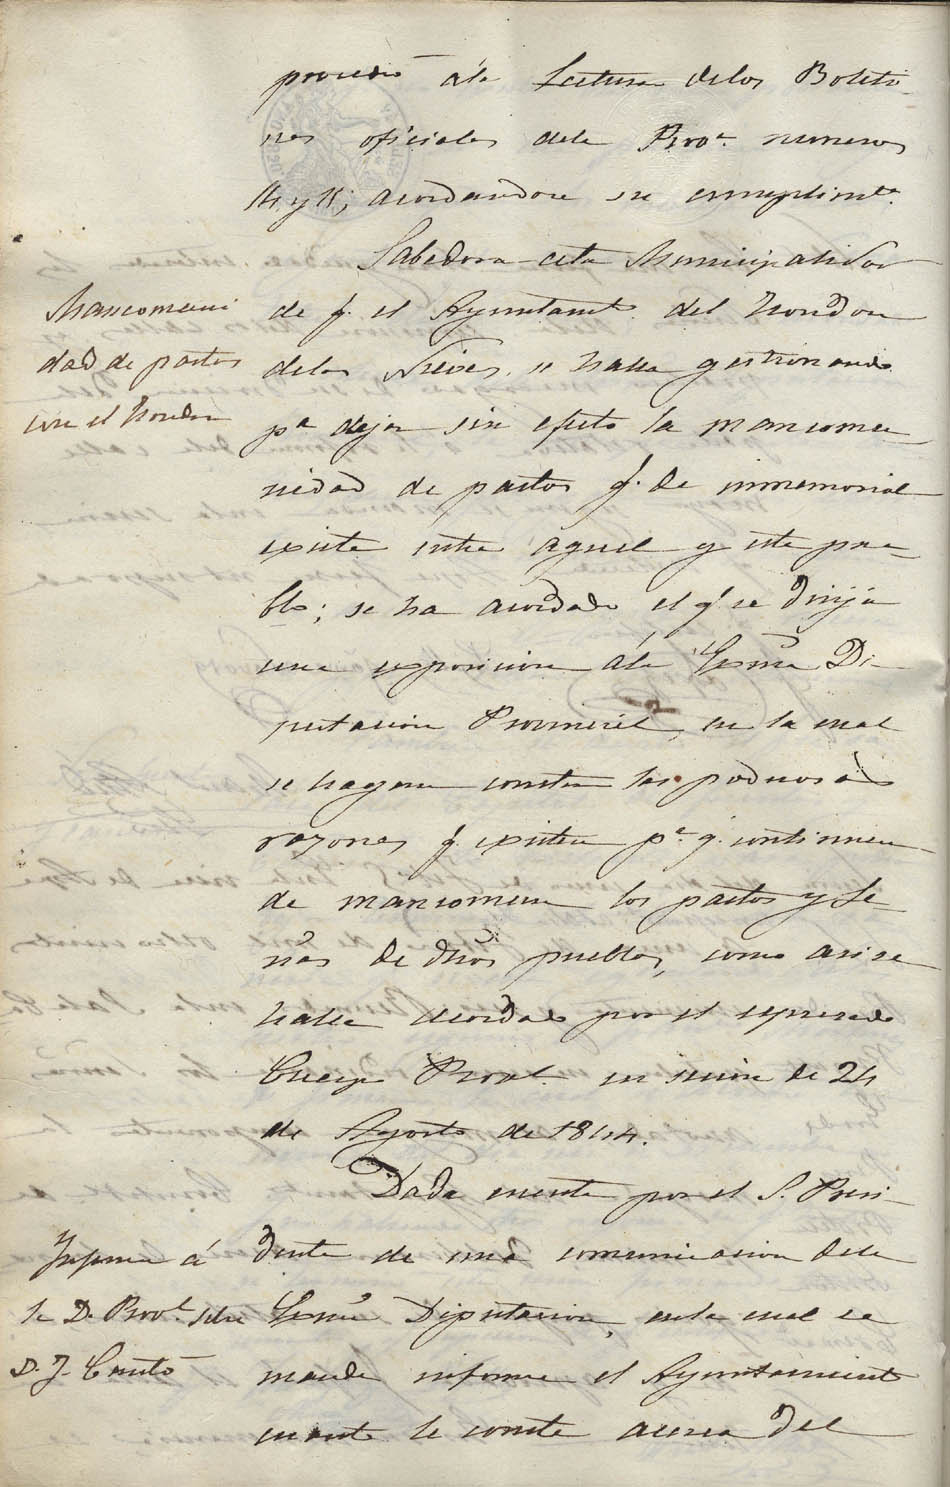 procedió á la Lectura delos Boleti-
nes oficiales dela Prov.ª numeros
14 y 15; acordandose su cumplimt.º
Sabedora esta Municipalidad
Mancomuni
dad de pastos
con el Hondon
de q.e el Ayuntamt.º del Hondon
delas Nieves se halla gestionando
p.ª dejar sin efecto la mancomu-
nidad de pastos q.e de inmemorial
existe entre aquel y este pue-
blo; se ha acordado el q.e se dirija
una exposicion á la Exma Di-
putacion Provincial, en la cual
se hagan constar las poderosas
razones q.e existen p.ª q.e continuen
de mancomun los pastos y Le-
ñas de dhos pueblos, como asi se
halla acordado por el espresado
Cuerpo Provl. en sesion de 24
de Agosto de 1844.
Dada cuenta por el S. Presi-
Informe á
la D. Provl. sobre
D. J. Cantó
dente de una comunicacion dela
Exma Diputacion, enla cual se
manda informe el Ayuntamiento
cuanto le conste acerca del